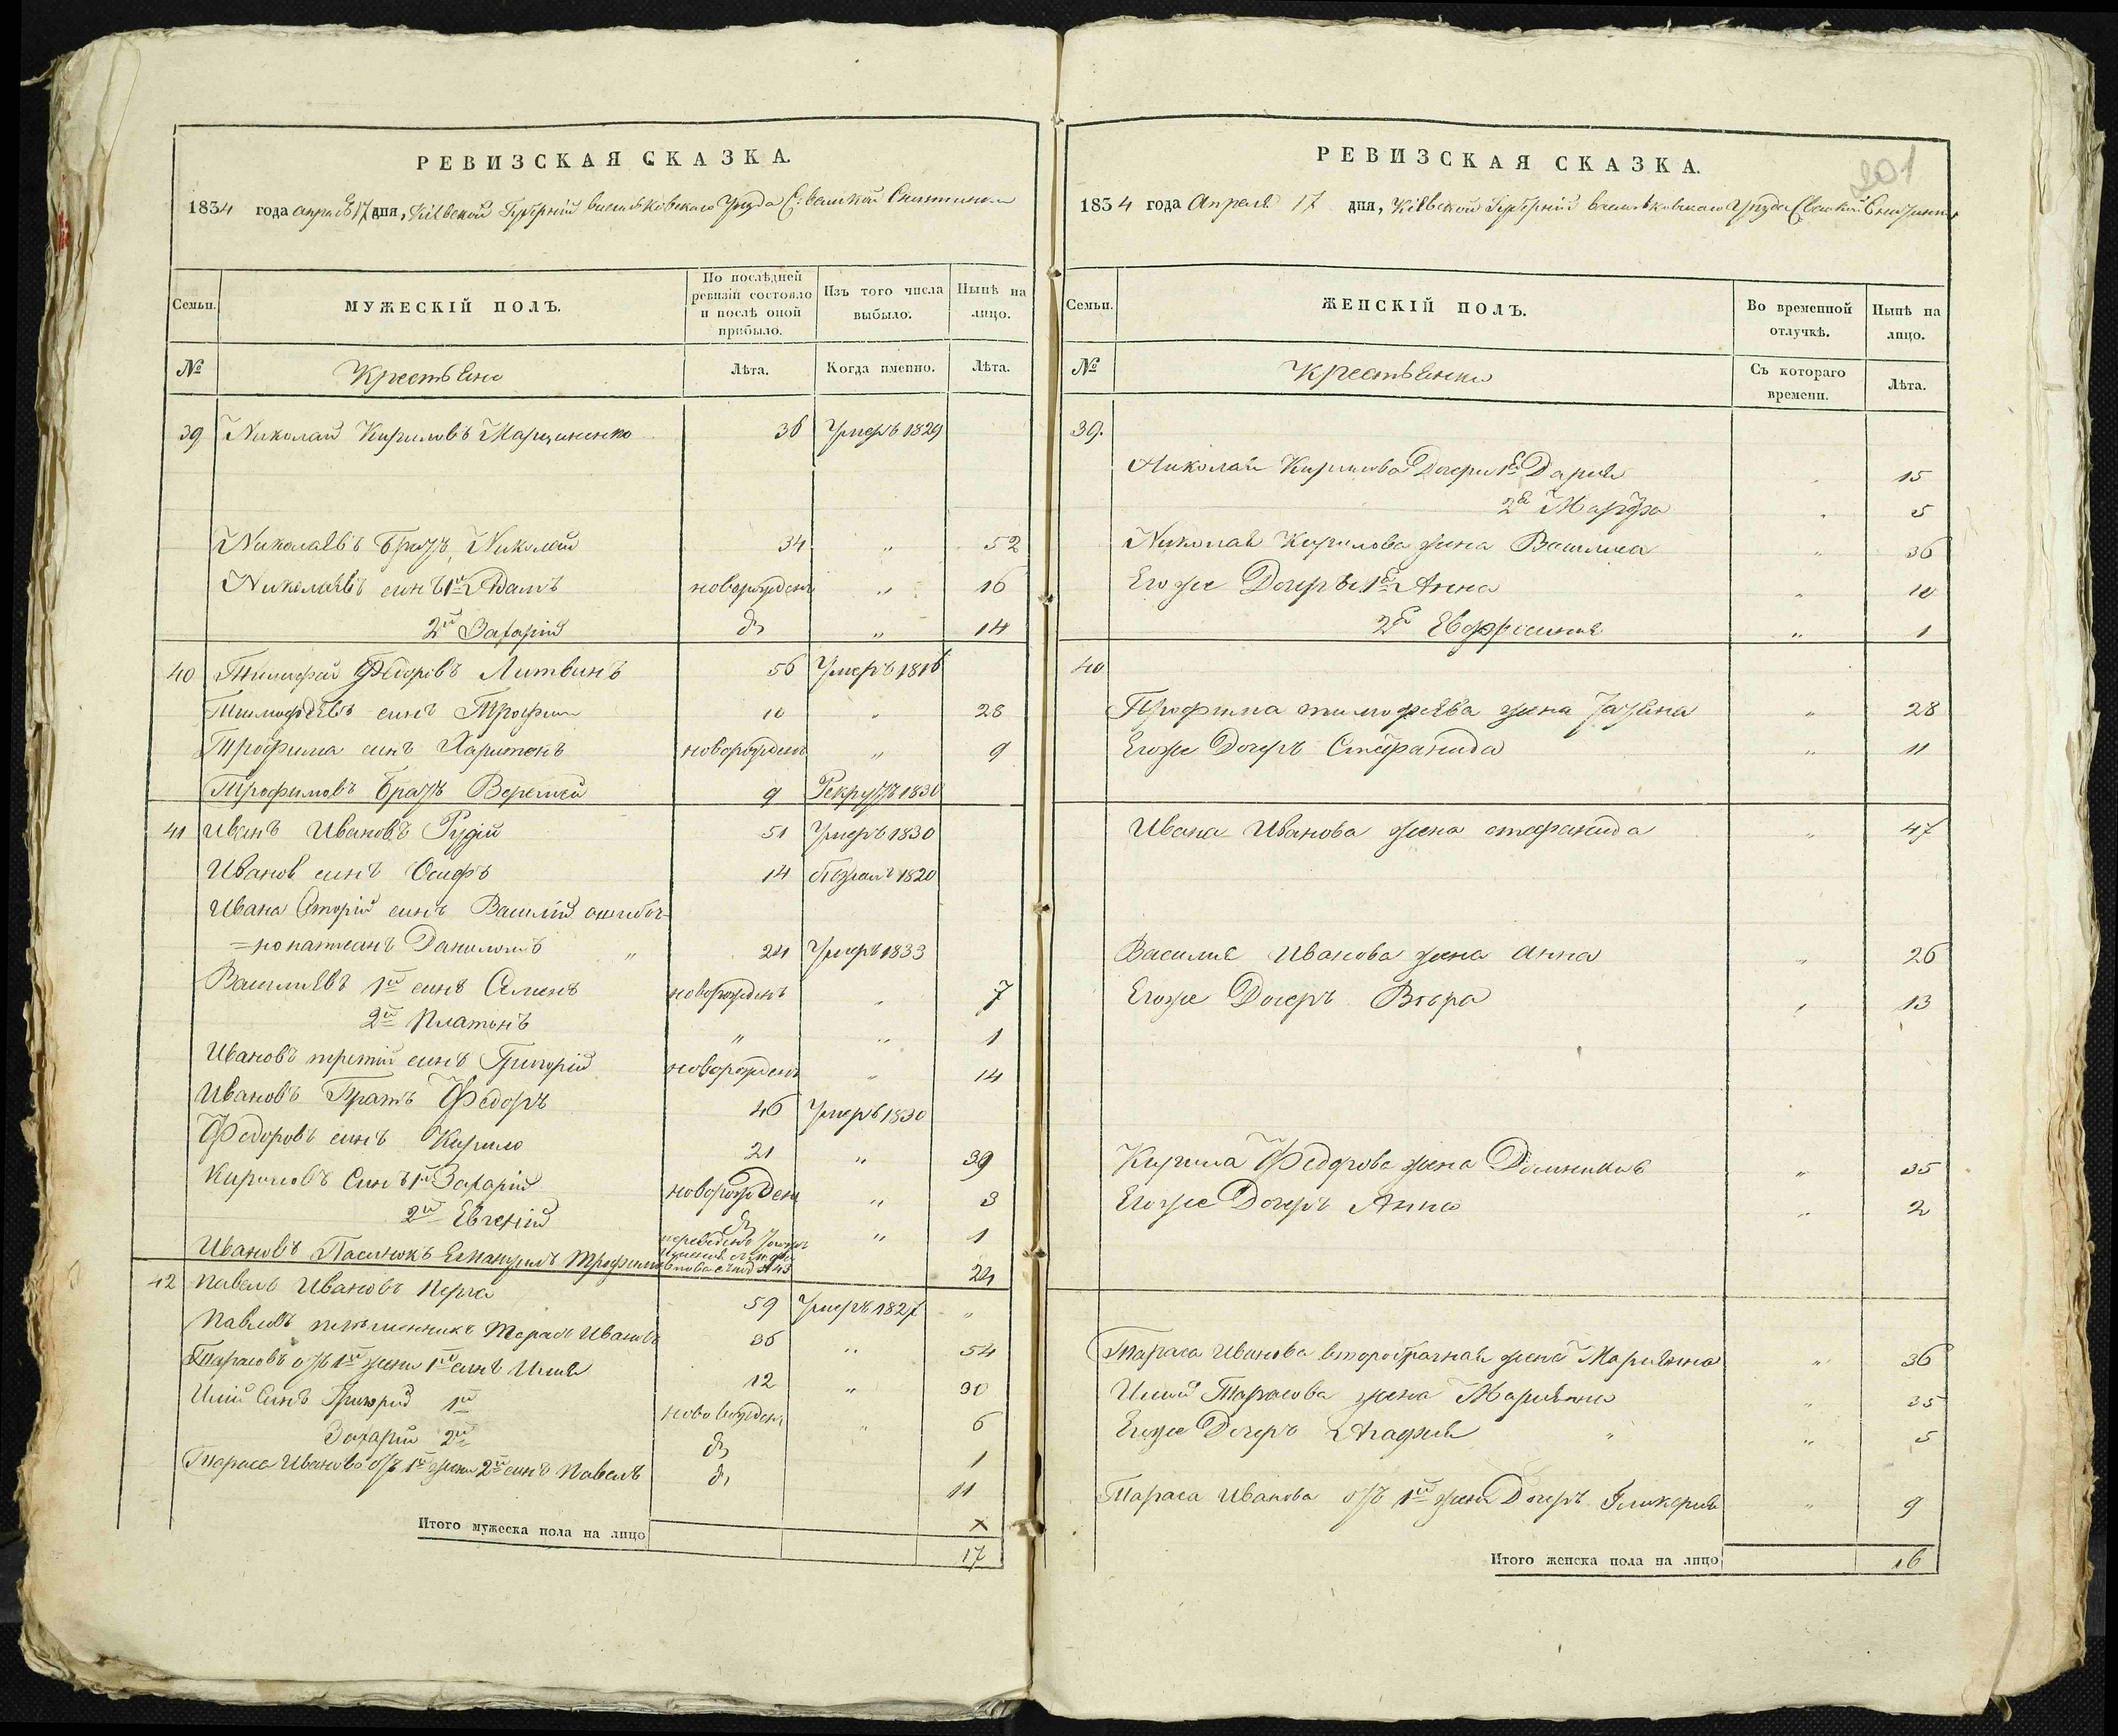 РЕВИЗСКАЯ СКАЗКА.
1834 года апреля 17 дня, Кіевской Губерній васильковского Уезда С: великой Снитинки
Семьи. МУЖЕСКІЙ ПОЛЪ. По послѣдней ревизіи состояло и послѣ оной прибыло. Изъ того числа выбыло. Нынѣ на лицо.
№ Крестьяне Лѣта. Когда именно. Лѣта.
39 Николай Кириловъ Марциненко 36 Умеръ 1829
Николаевъ братъ, Николай 34 „ 52
Николаевъ синъ 1й Адамъ новорожденъ „ 16
2й Захарій до „ 14
40 Тимофей Федоровъ Литвинъ 56 Умеръ 1816
Тимофеевъ синъ Трофим 10 „ 28
Трофима синъ Харитонъ новорожденъ „ 9
Трофимовъ братъ Веремей 9 Рекрутъ 1830
41 Иванъ Ивановъ Рудій 51 Умеръ 1830
Иванов синъ Осифъ 14 1820
Ивана вторій синъ Василій ошибоч-
=но написанъ Даниломъ „ 24 Умеръ 1833
Василиевъ 1й синъ Семенъ новорожденъ „ 7
2й Платонъ „ „ 1
Ивановъ третій синъ Григорій новорожденъ „ 14
Ивановъ Братъ Федоръ 46 Умеръ 1830
Федоровъ синъ Кирило 21 „ 39
Кириловъ Синъ 1й Захарій новорожден „ 3
2й Евгеній до „ 1
Ивановъ Пасинокъ Трофимъ 24
42 Павелъ Ивановъ 59 Умеръ 1827 „
Павловъ племенникъ Тарасъ Ивановъ 36 „ 54
Тарасовъ отъ 1й жени 1й синъ Илия 12 „ 30
Илии Синъ Григорій 1й новорожден „ 6
Захарій 2й до 1
Тараса Иванова отъ 1й жени 2й синъ Павелъ до 11
Итого мужеска пола на лицо 17
201
РЕВИЗСКАЯ СКАЗКА.
1834 года Апреля 17 дня, Кіевской Губерній васильковского Уезда С великой Снитинки
Семьи. ЖЕНСКІЙ ПОЛЪ. Во временной отлучкѣ. Нынѣ на лицо.
№ Крестьянки Съ котораго времени. Лѣта.
39.
Николая Кирилова Дочери 1я Дария „ 15
2я Марфа „ 5
Николая Кирилова жена Василиса „ 36
Егоже Дочери 1я Анна „ 10
2я Евфросиния „ 1
40
Трофима тимофеева жена Татяна „ 28
Егоже Дочеръ Стефанида „ 11
Ивана Иванова жена стефанида „ 47
Василия Иванова жена Анна „ 26
Егоже Дочеръ Вѣра „ 13
Кирила Федорова жена Домникия „ 35
Егоже Дочеръ Анна „ 2
Тараса Иванова второбрачная жена Марианна „ 36
Илии Тарасова жена Марианна „ 35
Егоже Дочеръ Агафия „ „ 5
Тараса Иванова отъ 1й жени Дочеръ Гликерия „ 9
Итого женска пола на лицо 16